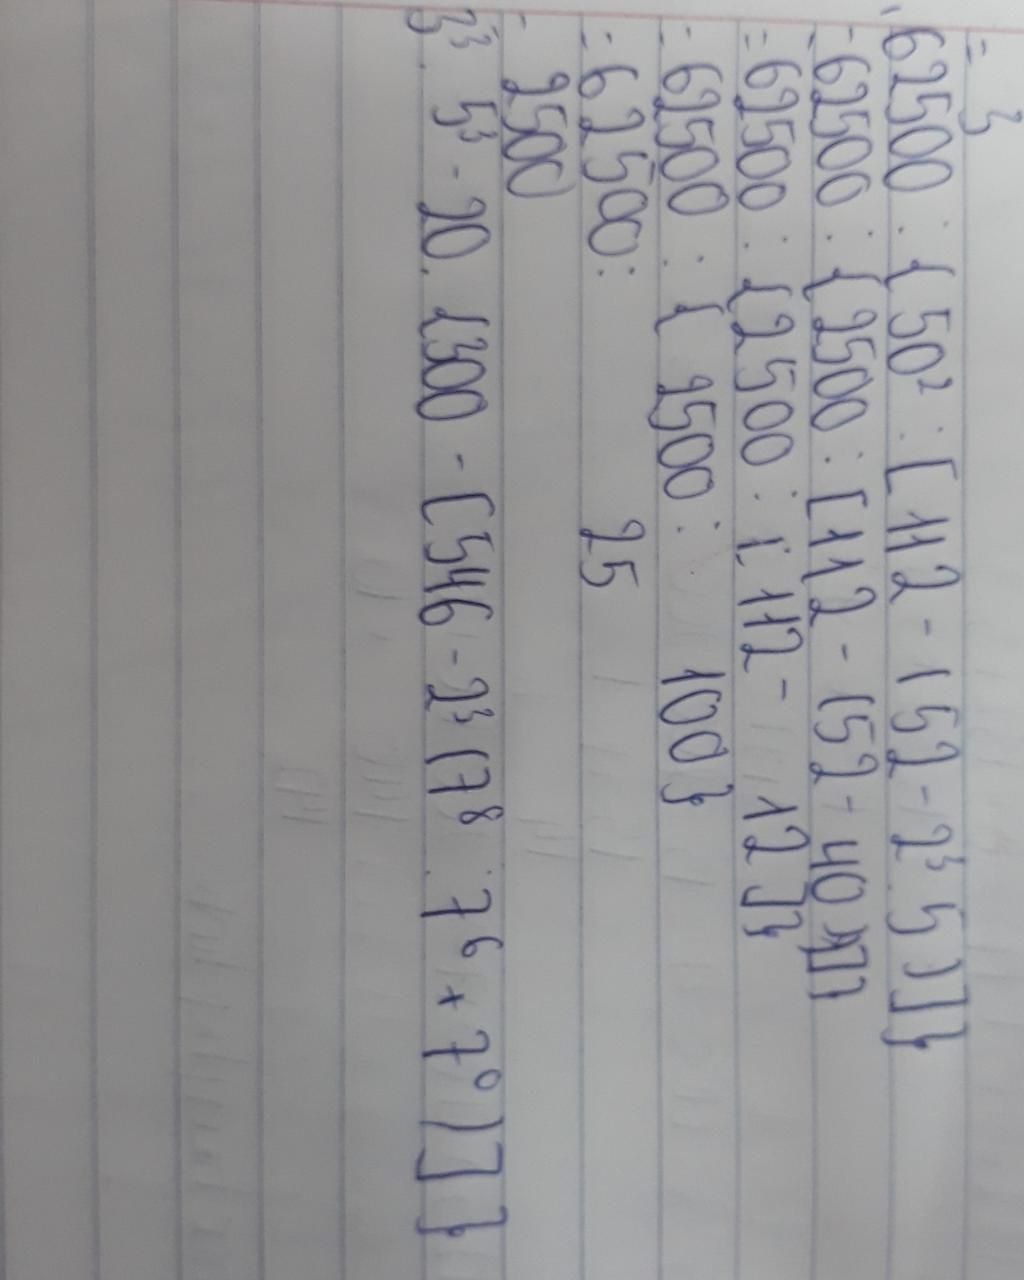 = 3
62500 : { 50² : [ 112 - ( 52 - 2³. 5 ) ] }
= 62500 : { 2500 : [ 112 - ( 52 - 40 ) ] }
= 62500 : { 2500 : [ 112 - 12 ] }
= 62500 : { 2500 : 100 }
= 62500 : 25
= 2500
5³ - 20. { 300 - [ 546 - 2³ ( 7⁸ : 7⁶ + 7⁰ ) ] }